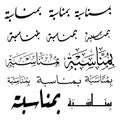 بمناسبة بمناسبة
بمناسبة بمناسبة
بمناسبة بمناسبة
بمناسبة بمناسبة
بمناسبة بمناسبة بمناسبة
بمناسبة بمناسبة